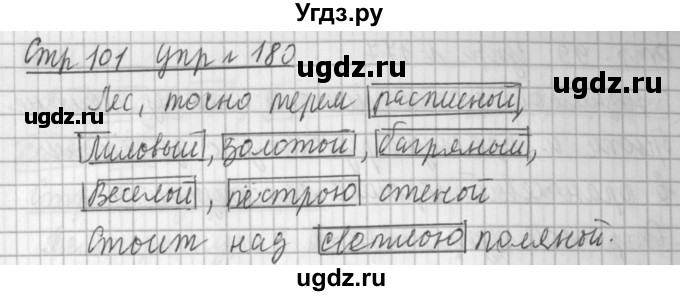 Угдз.ру
Стр 101 упр № 180
ugdz.ru ugdz.ru
Лес, точно терем расписной,
Лиловый, золотой, багряный,
Веселой, пестрою стеной
ugdz.ru ugdz.ru
Стоит над светлою поляной.
ugdz.ru